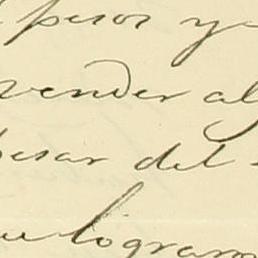 pesos y
vender al
pesar del
logram